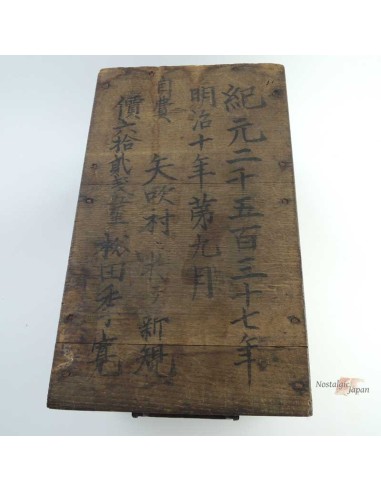 紀元二千五百三十七年
明治十年第九月
自費 矢吹村 新規
價六拾貳 松田
Nostalgic
japan